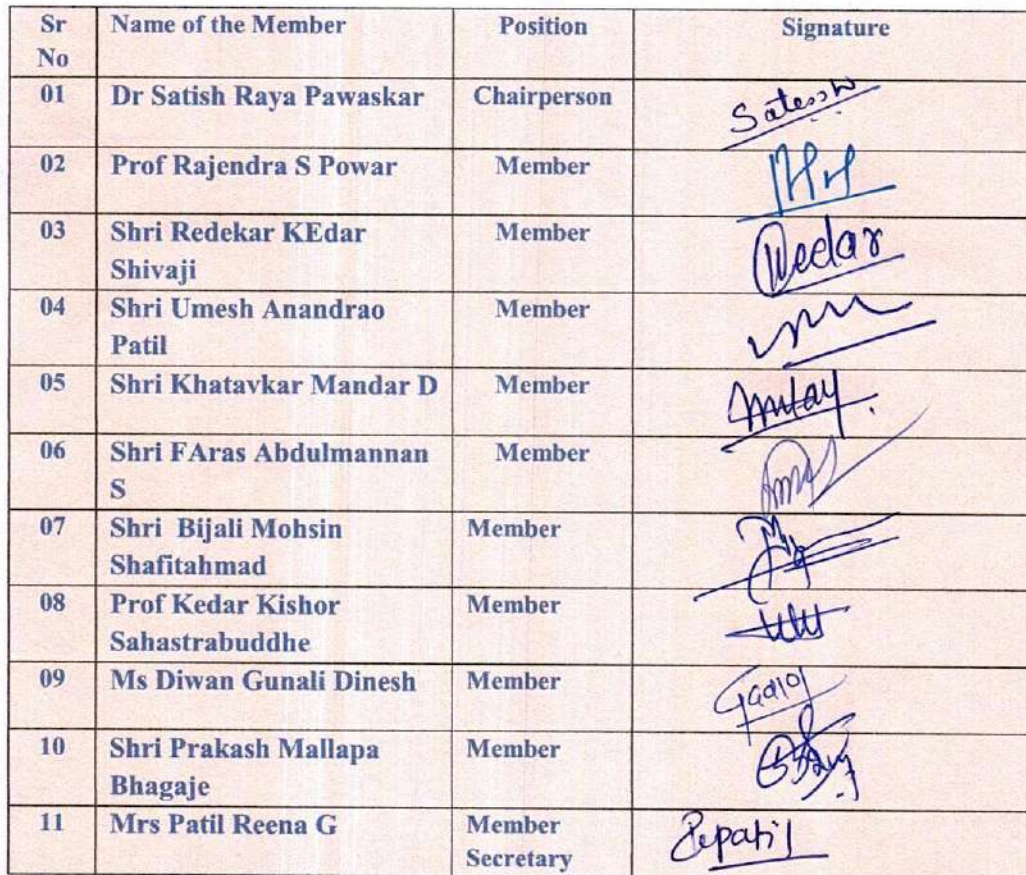 Sr No Name of the Member Position Signature
01 Dr Satish Raya Pawaskar Chairperson
02 Prof Rajendra S Powar Member
03 Shri Redekar KEdar Shivaji Member
04 Shri Umesh Anandrao Patil Member
05 Shri Khatavkar Mandar D Member
06 Shri FAras Abdulmannan S Member
07 Shri Bijali Mohsin Shafitahmad Member
08 Prof Kedar Kishor Sahastrabuddhe Member
09 Ms Diwan Gunali Dinesh Member
10 Shri Prakash Mallapa Bhagaje Member
11 Mrs Patil Reena G Member Secretary